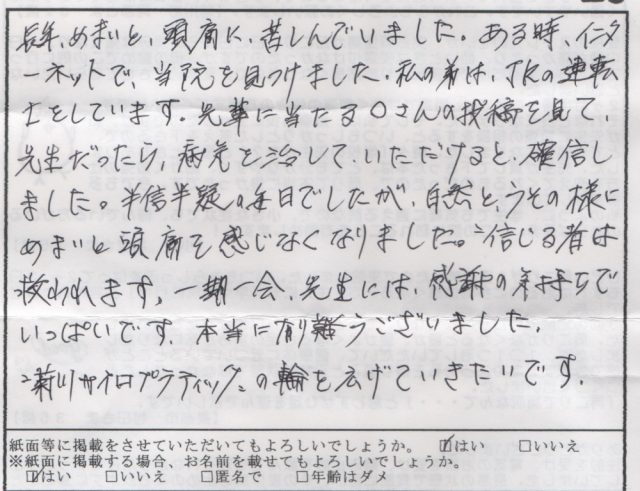 長年、めまいと、頭痛に、苦しんでいました。ある時、インタ
ーネットで、当院を見つけました。私の弟は、JRの運転
士をしています。先輩に当たる〇さんの投稿を見て、
先生だったら、病気を治して、いただけると、確信し
ました。半信半疑の毎日でしたが、自然とうその様に
めまいと頭痛を感じなくなりました。信じる者は
救われます。一期一会、先生には、感謝の気持ちで
いっぱいです。本当に有難うございました。
菊川カイロプラティックの輪を広げていきたいです。
紙面等に掲載をさせていただいてもよろしいでしょうか。 ☑はい □いいえ
※紙面に掲載する場合、お名前を載せてもよろしいでしょうか。
☑はい □いいえ □匿名で □年齢はダメ